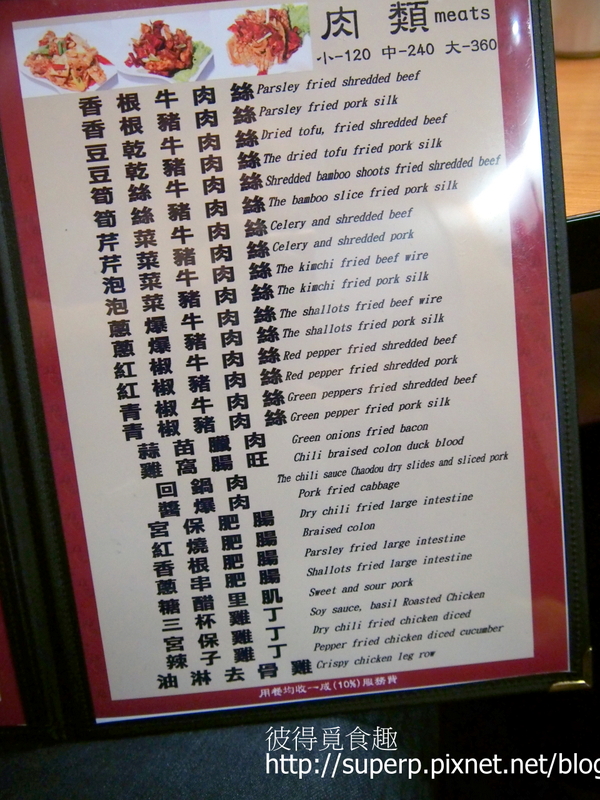 肉類 meats
小-120 中-240 大-360
香根牛肉絲 Parsley fried shredded beef
香根豬肉絲 Parsley fried pork silk
豆乾牛肉絲 Dried tofu, fried shredded beef
豆乾豬肉絲 The dried tofu fried pork silk
筍絲牛肉絲 Shredded bamboo shoots fried shredded beef
筍絲豬肉絲 The bamboo slice fried pork silk
芹菜牛肉絲 Celery and shredded beef
芹菜豬肉絲 Celery and shredded pork
泡菜牛肉絲 The kimchi fried beef wire
泡菜豬肉絲 The kimchi fried pork silk
蔥爆牛肉絲 The shallots fried beef wire
蔥爆豬肉絲 The shallots fried pork silk
紅椒牛肉絲 Red pepper fried shredded beef
紅椒豬肉絲 Red pepper fried shredded pork
青椒牛肉絲 Green peppers fried shredded beef
青椒豬肉絲 Green pepper fried pork silk
蒜苗臘肉 Green onions fried bacon
雞窩腸旺 Chili braised colon duck blood
回鍋肉 The chili sauce Chaodou dry slides and sliced pork
醬爆肉 Pork fried cabbage
宮保肥腸 Dry chili fried large intestine
紅燒肥腸 Braised colon
香根肥腸 Parsley fried large intestine
蔥串肥腸 Shallots fried large intestine
糖醋里肌 Sweet and sour pork
三杯雞丁 Soy sauce, basil Roasted Chicken
宮保雞丁 Dry chili fried chicken diced
辣子雞丁 Pepper fried chicken diced cucumber
油淋去骨雞 Crispy chicken leg row
用餐均收一成(10%)服務費
彼得覓食趣
http://superp.pixnet.net/blog